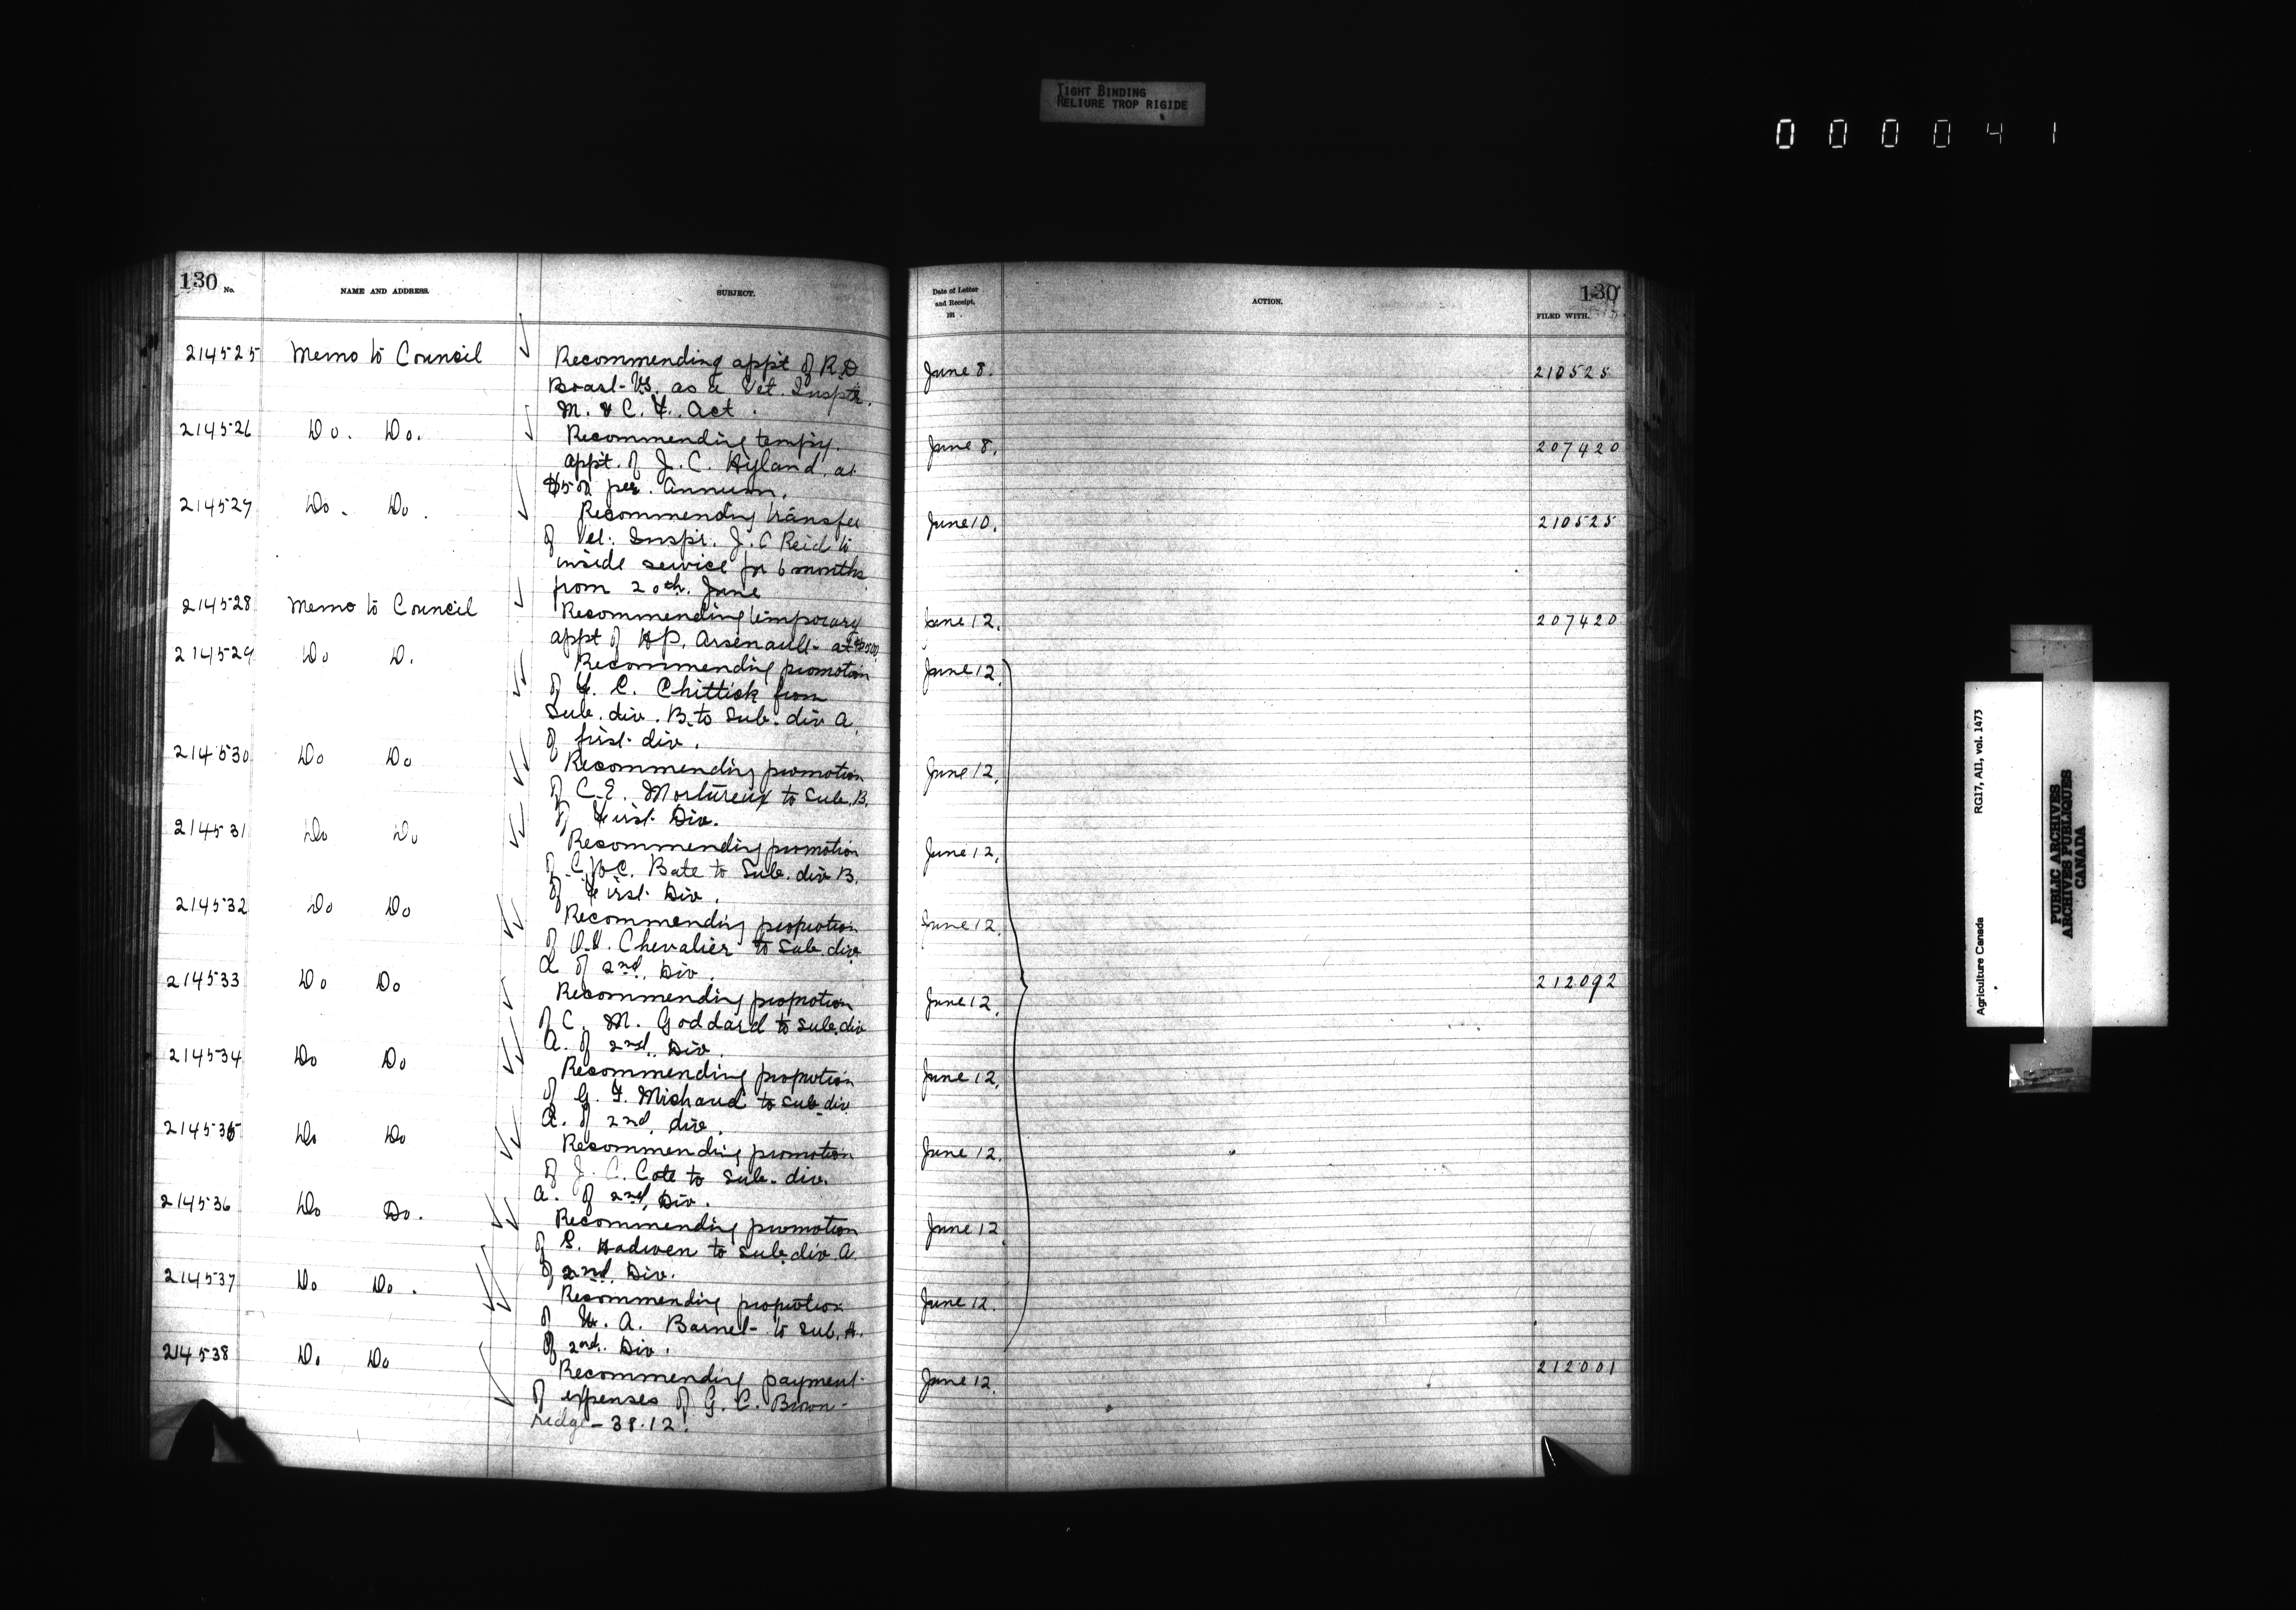 TIGHT BINDING
RELIURE TROP RIGIDE
000041
130
No.
NAME AND ADDRESS.
SUBJECT.
Date of Letter
and Receipt,
191 .
ACTION.
130
FILED WITH.
214525 Memo to Council Recommending appt of R.D June 8. 210525
V.S. as a Vet. Insptr.
M. & C. F. Act.
214526 Do. Do. Recommending tempy. June 8. 207420
appt. of J. C. Hyland at
$500 per. Annum.
214527 Do. Do. Recommending transfer June 10. 210525
of Vet. Inspr. J. C Reid to
inside service for 6 months
from 20th. June
214528 Memo to Council Recommending temporary June 12. 207420
appt of H P. Arsenault at $500.
214529 Do D. Recommending promotion June 12.
of C. Chittick from
Sub. div. B. to Sub. div A
of first div.
214530 Do Do Recommending promotion June 12.
of C.E. Mortureux to Sub. B.
of First Div.
214531 Do Do Recommending promotion June 12.
of C. Bate to Sub. div B.
of First Div.
214532 Do Do Recommending promotion June 12.
of Chevalier to Sub div
A of 2nd. Div.
214533 Do Do Recommending promotion June 12. 212092
of C. M. Goddard to Sub. div
A. of 2nd. Div.
214534 Do Do Recommending promotion June 12.
of G. F. Michaud to Sub div
A. of 2nd. div.
214535 Do Do Recommending promotion June 12.
of J. C. Cote to Sub. div.
A. of 2nd. Div.
214536 Do Do. Recommending promotion June 12
of S. Hadwen to Sub div. A.
of 2nd. Div.
214537 Do Do. Recommending promotion June 12.
of A. Barnet to Sub. A.
of 2nd. Div.
214538 Do Do Recommending payment June 12. 212001
of expenses of G. C. Brown-
ridge – 38.12.
Agriculture Canada RG17, AII, vol. 1473
PUBLIC ARCHIVES
ARCHIVES PUBLIQUES
CANADA